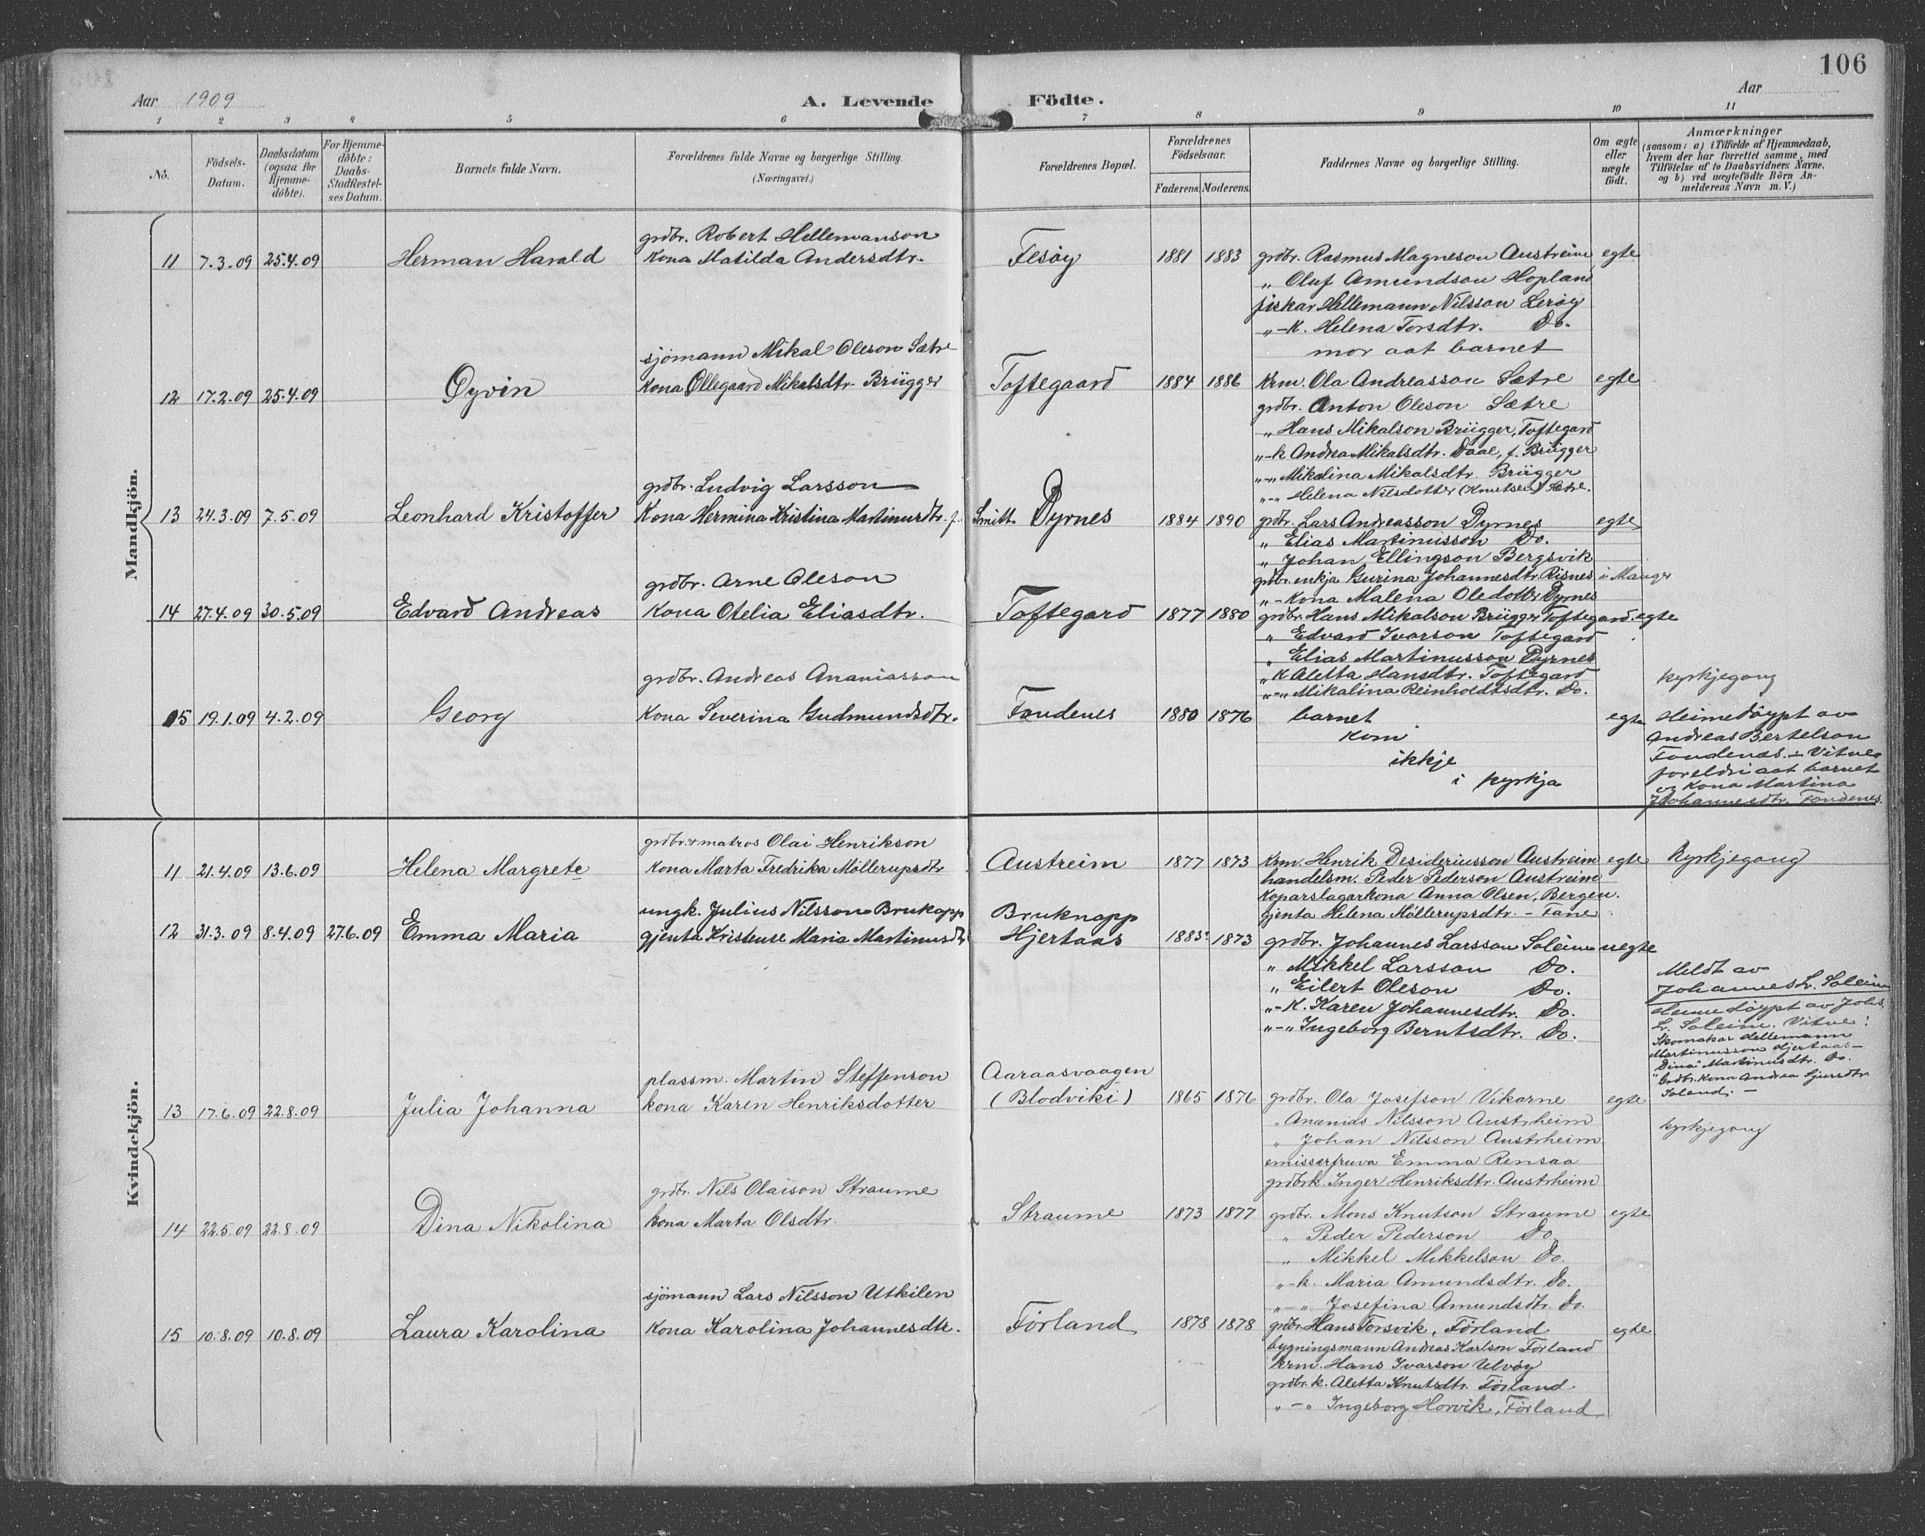 106
Aar 1909
A. Levende Födte.
Aar
1 2 3 4 5 6 7 8 9 10 11
No.
Födsels-Datum.
Daabsdatum (ogsaa for Hjemme-döbte).
For Hjemme-döbte: Daabs-Stadfæstel-ses Datum.
Barnets fulde Navn.
Forældrenes fulde Navne og borgerlige Stilling.
(Næringsvei.)
Forældrenes Bopæl.
Forældrenes Födselsaar.
Faderens. Moderens.
Faddernes Navne og borgerlige Stilling.
Om ægte eller uægte födt.
Anmærkninger
(saasom: a) i Tilfælde af Hjemmedaab,
hvem der har forrettet samme, med
Tilföielse af to Daabsvidners Navne.
og b) ved uægtefödte Börn An-
melderens Navn m. V.)
Mandkjön.
grdbr. Robert Hellemanson
11 7.3.09 25.4.09 Herman Harald Kona Matilda Andersdtr. Fesöy 1881 1883 grdbr. Rasmus Magneson Austreim egte
„ Oluf Amundson Hopland
fiskar Hellemann Nilsson Leröy
„-k. Helena Torsdtr. Do.
mor aat barnet
sjömann Mikal Oleson Sætre
12 17.2.09 25.4.09 Öyvin Kona Ollegaard Mikalsdtr. Brügger Toftegaard 1884 1886 Krm. Ola Andreasson Sætre egte
grdbr. Anton Oleson Sætre
„ Hans Mikalson Brügger, Toftegard
„-k Andrea Mikalsdtr. Daae, f. Brügger
„-„ Mikalina Mikalsdtr. Brügger
„-„ Helena Nilsdotter (Knutsen) Sætre.
grdbr. Ludvig Larsson
13 24.3.09 7.5.09 Leonhard Kristoffer Kona Hermina Kristina Martinusdtr. f. Smitt. Dyrnes 1884 1890 grdbr. Lars Andreasson Dyrnes egte
„ Elias Martinusson Do.
„ Johan Ellingson Bergsvik
grdbr. enkja Gurina Johannesdtr. Risnes i Manger
„-Kona Malena Oledottr Dyrnes
grdbr. Arne Oleson
14 27.4.09 30.5.09 Edvard Andreas Kona Otelia Eliasdtr. Toftegard 1877 1880 grdbr. Hans Mikalson Brügger Toftegard. egte
„ Edvard Ivarson Toftegard
„ Elias Martinusson Dyrnes
„ K Aletta Hansdtr. Toftegard
„-„ Mikalina Reinholdtsdtr. Do.
grdbr. Andreas Ananiasson
15 19.1.09 4.2.09 Georg Kona Severina Gudmundsdtr. Fondenes 1880 1876 barnet egte
kom
ikkje
i kyrkja
kyrkjegong
Heimedöypt av
Andreas Bertelson
Fondenes. Vitne
foreldri aat barnet
og Kona Martina
Johannesdtr. Fondenes.
Kvindekjön.
grdbr. + matros Olai Henrikson
11 21.4.09 13.6.09 Helena Margrete Kona Marta Fredrika Möllerupsdtr Austreim 1877 1873 Krm. Henrik Desideriusson Austreim egte Kyrkjegong
handelsm. Peder Pederson Austreim
Koparslagarkona Anna Olsen, Bergen.
gjenta Helena Möllerupsdtr. - Fane
ungk. Julius Nilsson Bruknapp Bruknapp
12 31.3.09 8.4.09 27.6.09 Emma Maria gjenta Kristense Maria Martinusdtr Hjertaas 1883 1873 grdbr. Johannes Larsson Soleim uegte
„ Mikkel Larsson Do.
„ Eilert Oleson Do.
„-K. Karen Johannesdtr. Do.
„-„ Ingeborg Berntsdtr. Do.
Meldt av
Johannes L. Soleim
Heimedöypt av Johs
L. Soleim. Vitne:
Skomakar Hellemann
Martinusson Hjertaas-
Dina Martinusdtr. Do.
Grdbr. Kona Andrea
Solend. -
plassm. Martin Steffenson Aaraasvaagen
13 17.6.09 22.8.09 Julia Johanna kona Karen Henriksdotter (Blodviki) 1865 1876 grdbr. Ola Josefson Vikarne egte
„ Ananias Nilsson Austrheim kyrkjegong
„ Johan Nilsson Austrheim
emissærfruva Emma Rensaa
grdbrk. Inger Henriksdtr. Austrheim
grdbr. Nils Olaison Straume
14 22.5.09 22.8.09 Dina Nikolina kona Marta Olsdtr. Straume 1873 1877 grdbr. Mons Knutson Straume egte
„ Peder Pederson Do
„ Mikkel Mikkelson Do.
„-k. Maria Amundsdtr. Do.
„-„ Josefina Amundsdtr. Do.
sjömann Lars Nilsson Utkilen
15 10.8.09 10.8.09 Laura Karolina Kona Karolina Johannesdtr. Förland 1878 1878 grdbr. Hans Torsvik, Förland egte
bygningsmann Andreas Karlson Förland
Krm. Hans Ivarson Ulvöy
grdbr. k. Aletta Knutsdtr. Förland.
„-„ Ingeborg Horvik, Förland